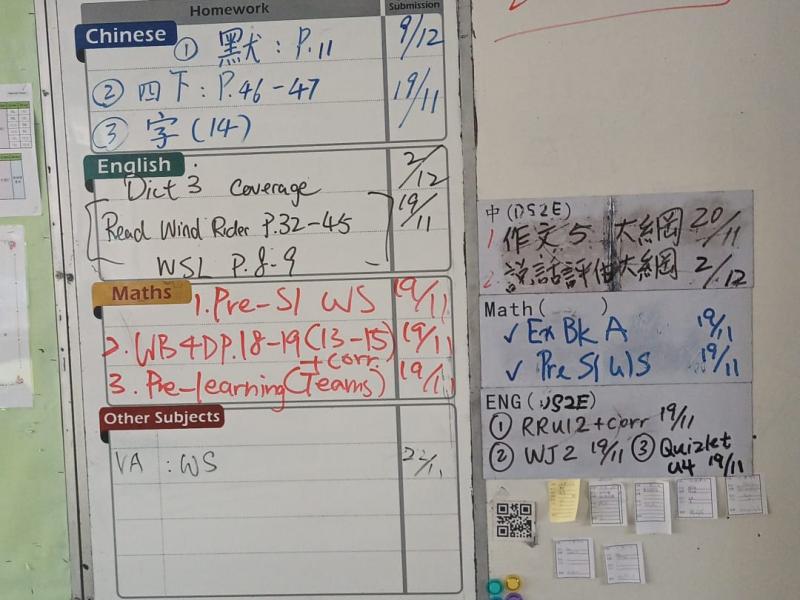 Homework Submission
Chinese ① 默: P.11 9/12
② 四下: P.46-47 19/11
③ 字(14)
English
Dict 3 Coverage 2/12
Read Wind Rider P.32-45 19/11
WSL P.8-9
Maths 1. Pre-S1 WS 19/11
2. WB4DP.18-19(13-15) 19/11
+corr.
3. Pre-learning(Teams) 19/11
Other Subjects
VA : WS 22/11
中(DS2E)
1 作文5 大綱 20/11
2. 說話評估大綱 2/12
Math( )
✓ Ex Bk A 19/11
✓ Pre S1 WS 19/11
ENG(DS2E)
① RRU12+corr 19/11
② WJ2 19/11 ③ Quizlet
U4 19/11